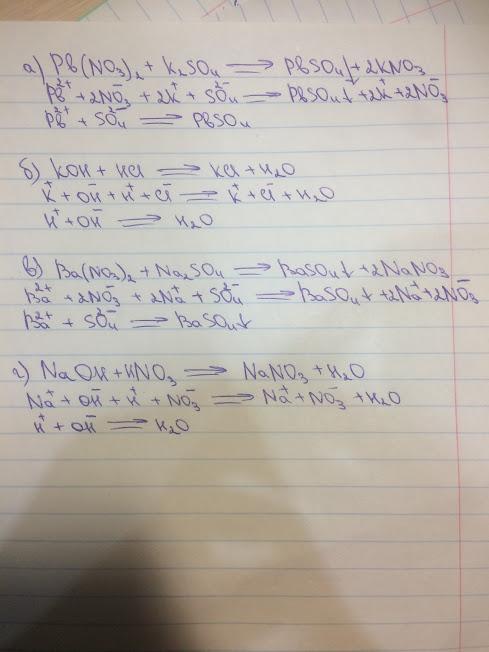 а) Pb(NO₃)₂ + K₂SO₄ ⟹ PbSO₄↓ + 2KNO₃
Pb²⁺ + 2NO₃⁻ + 2K⁺ + SO₄²⁻ ⟹ PbSO₄↓ + 2K⁺ + 2NO₃⁻
Pb²⁺ + SO₄²⁻ ⟹ PbSO₄
б) KOH + HCl ⟹ KCl + H₂O
K⁺ + OH⁻ + H⁺ + Cl⁻ ⟹ K⁺ + Cl⁻ + H₂O
H⁺ + OH⁻ ⟹ H₂O
в) Ba(NO₃)₂ + Na₂SO₄ ⟹ BaSO₄↓ + 2NaNO₃
Ba²⁺ + 2NO₃⁻ + 2Na⁺ + SO₄²⁻ ⟹ BaSO₄↓ + 2Na⁺ + 2NO₃⁻
Ba²⁺ + SO₄²⁻ ⟹ BaSO₄↓
г) NaOH + HNO₃ ⟹ NaNO₃ + H₂O
Na⁺ + OH⁻ + H⁺ + NO₃⁻ ⟹ Na⁺ + NO₃⁻ + H₂O
H⁺ + OH⁻ ⟹ H₂O